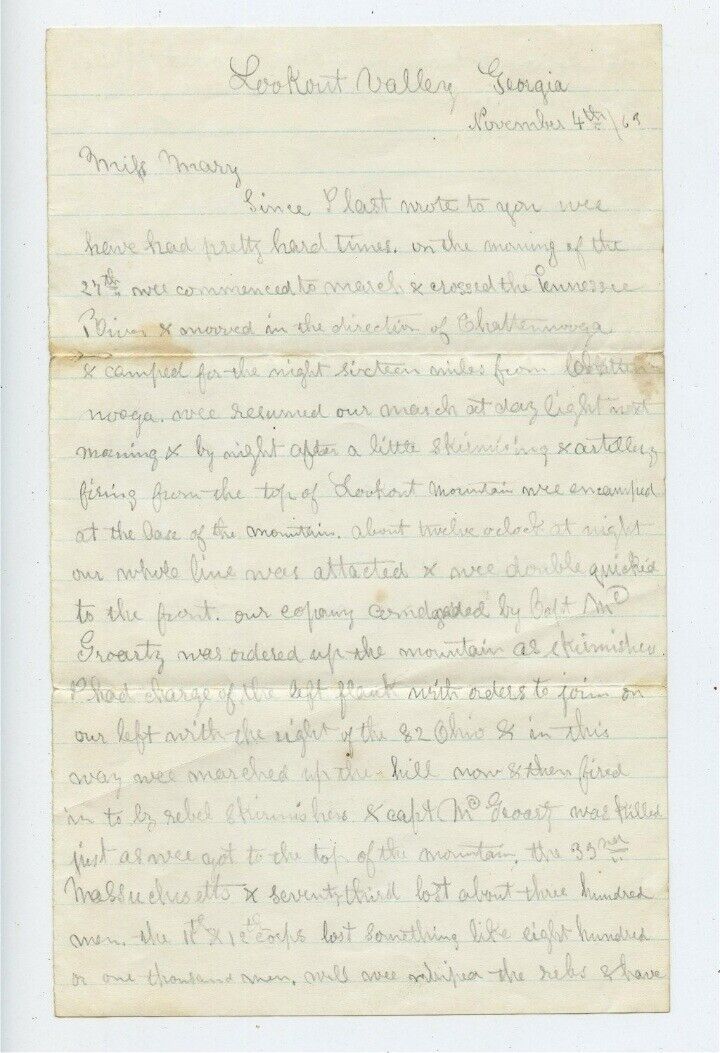 Lookout Valley Georgia
November 4th /63
Miss Mary
Since I last wrote to you wee
have had pretty hard times. on the morning of the
27th wee commenced to march & crossed the Tennessee
River & mooved in the direction of Chattennooga
& camped for the night sixteen miles from Chatten
nooga. wee resumed our march at day light next
morning & by night after a little skirmishing & artillery
firing from the top of Lookout mountain wee encamped
at the base of the mountain. about twelve oclock at night
our whole line was attacted & wee double quicked
to the front. our copany by Capt Mc
Groartz was ordered up the mountain as skirmishers.
I had charge of the left flank with orders to join on
our left with the right of the 82 Ohio & in this
way wee marched up the hill now & then fired
in to by rebel skirmishers & capt Mc Groartz was killed
just as wee got to the top of the mountain. the 33rd
Massuchusetts & seventythird lost about three hundred
men. the 11th & corps lost something like eight hundred
or one thousand men. well wee the rebs & have